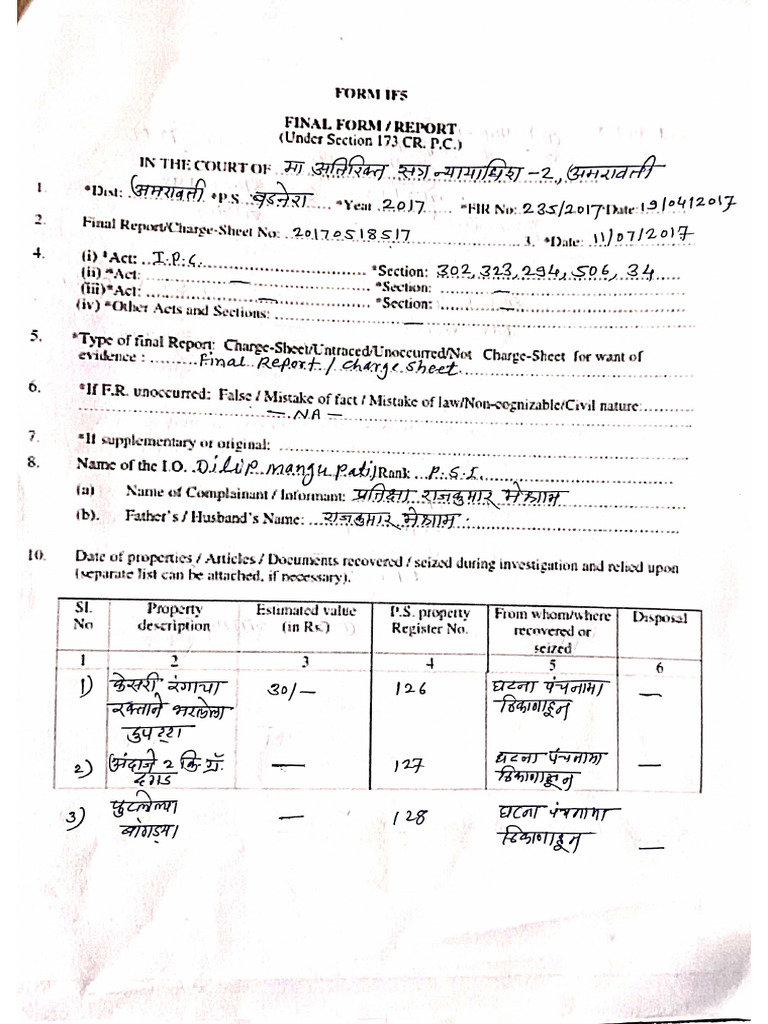 FORM IF5
FINAL FORM / REPORT
(Under Section 173 CR. P.C.)
IN THE COURT OF मा अतिरिक्त सत्र न्यायाधिश -2, अमरावती
1. *Dist: अमरावती *P.S. बडनेरा *Year 2017 *FIR No: 235/2017 Date: 19/04/2017
2. Final Report/Charge-Sheet No: 20170518517 3. *Date: 11/07/2017
4. (i) *Act: I.P.C. *Section: 302, 323, 294, 506, 34
(ii) *Act: — *Section:
(iii)*Act: — *Section: —
(iv) *Other Acts and Sections: —
5. *Type of final Report: Charge-Sheet/Untraced/Unoccurred/Not Charge-Sheet for want of
evidence : Final Report / Charge Sheet
6. *If F.R. unoccurred: False / Mistake of fact / Mistake of law/Non-cognizable/Civil nature:
— NA —
7. *If supplementary or original:
8. Name of the I.O. Dilip Mangu Patil Rank P.S.I.
(a) Name of Complainant / Informant: प्रतिक्षा राजकुमार मेश्राम
(b). Father's / Husband's Name: राजकुमार मेश्राम.
10. Date of properties / Articles / Documents recovered / seized during investigation and relied upon
(separate list can be attached, if necessary).
Sl. No Property description Estimated value (in Rs.) P.S. property Register No. From whom/where recovered or seized Disposal
1 2 3 4 5 6
1) केसरी रंगाचा 30/— 126 घटना पंचनामा —
रक्ताने भरलेला ठिकाणाहून
दुपट्टा
2) अंदाजे 2 कि.ग्रॅ. — 127 घटना पंचनामा —
दगड ठिकाणाहून
3) फुटलेल्या — 128 घटना पंचनामा
बांगड्या ठिकाणाहून —